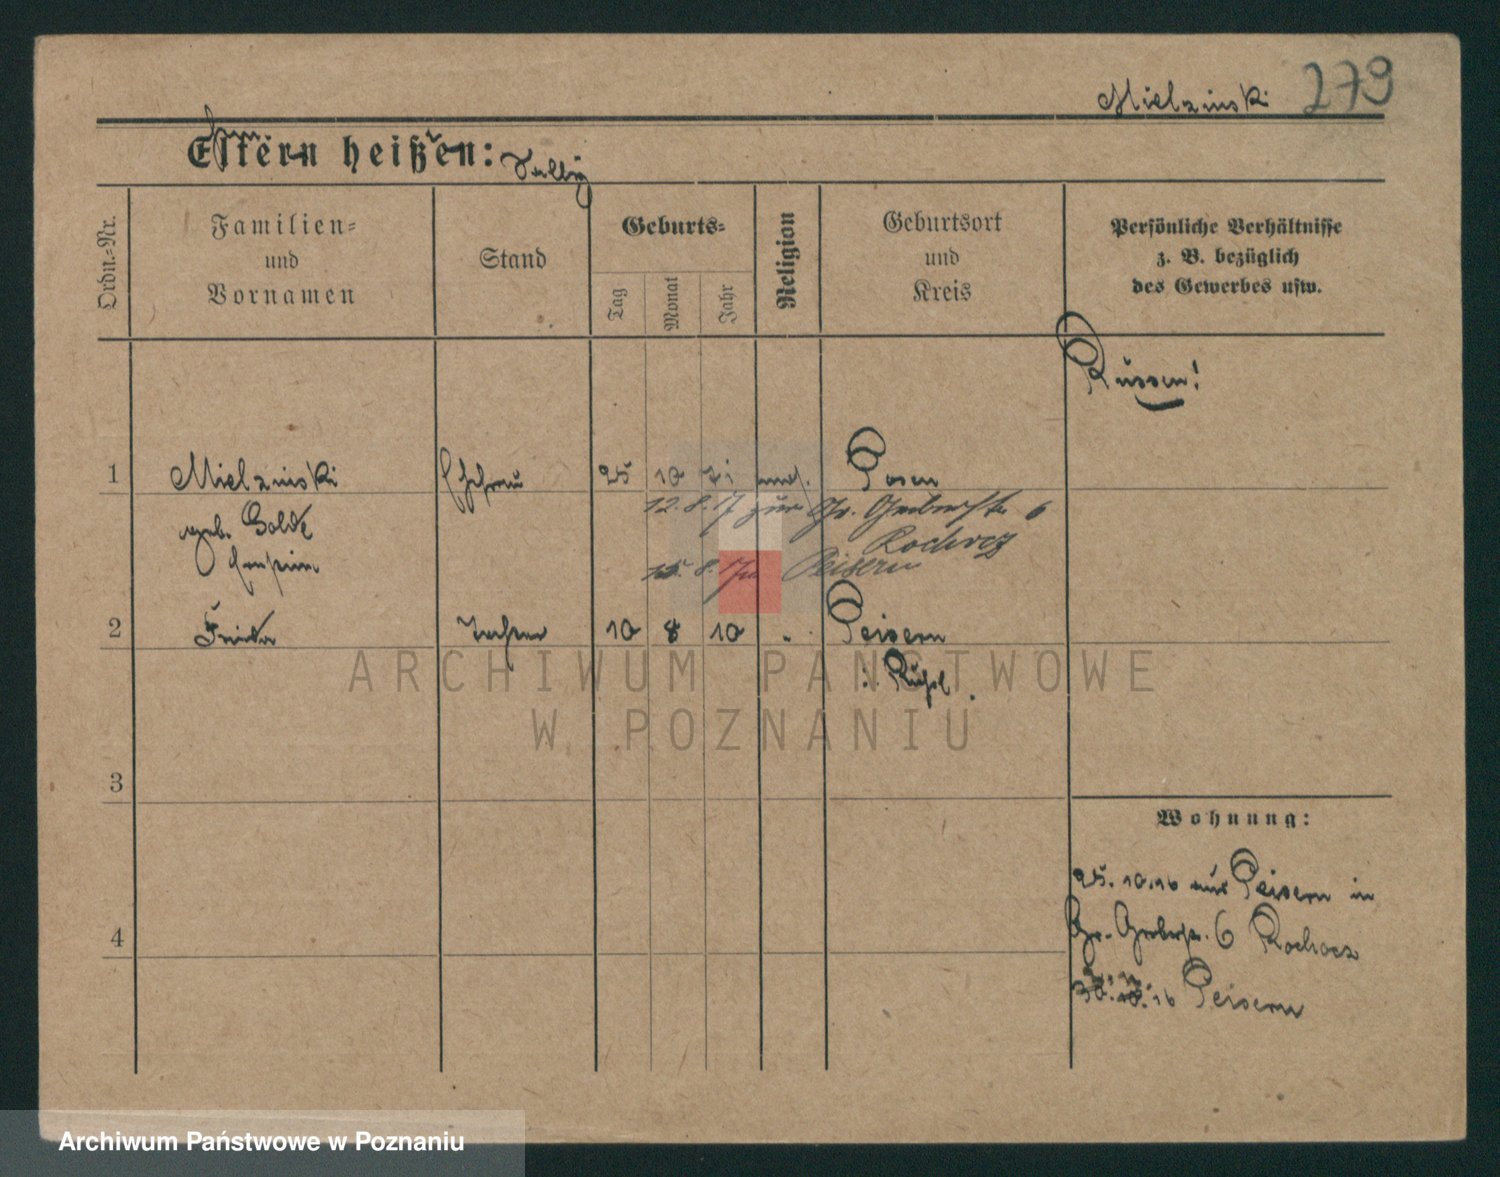 Mielzinski 279
Eltern heißen:
Ordn.=Nr.
Familien=
und
Vornamen
Stand
Geburts=
Tag
Monat
Jahr
Religion
Geburtsort
und
Kreis
Persönliche Verhältnisse
z. B. bezüglich
des Gewerbes usw.
Russen!
1 Mielzinski Ehefrau 25 10 71 Posen
12.8.17 zur Gr. Gerberstr. 6
geb.
Kochocz
15.8.17 Peisern
2 Frieda Tochter 10 8 10 Peisern
ARCHIWUM PAŃSTWOWE
W POZNANIU
3
Wohnung:
25.10.16 aus Peisern in
4 Gr. Gerberstr. 6 Kochocz
16 Peisern
Archiwum Państwowe w Poznaniu